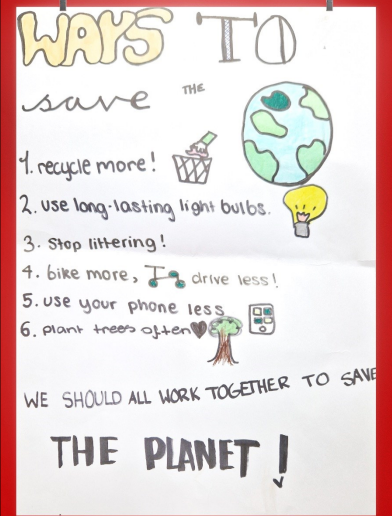 WAYS TO
save THE
1. recycle more!
2. use long-lasting light bulbs.
3. Stop littering!
4. bike more, drive less!
5. use your phone less
6. plant trees often
WE SHOULD ALL WORK TOGETHER TO SAVE
THE PLANET!